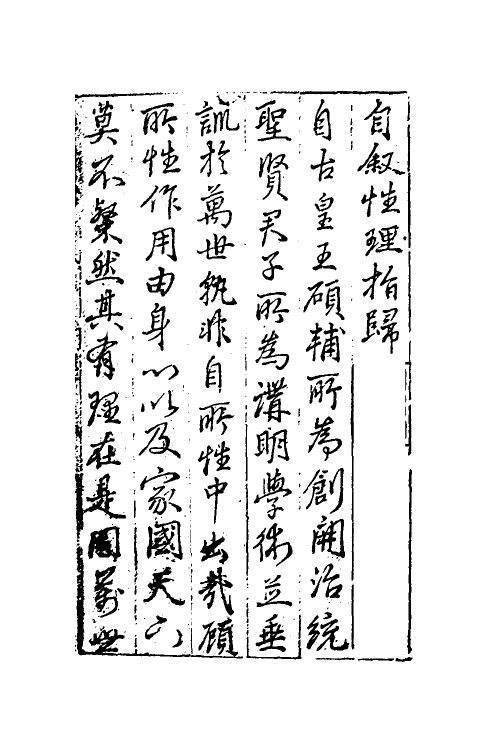 自敘性理指歸
自古皇王碩輔所為創開治統
聖賢君子所為講明學術並垂
訓於萬世孰非自所性中出哉顧
所性作用由身心以及家國天下
莫不粲然具有理在是固萬世